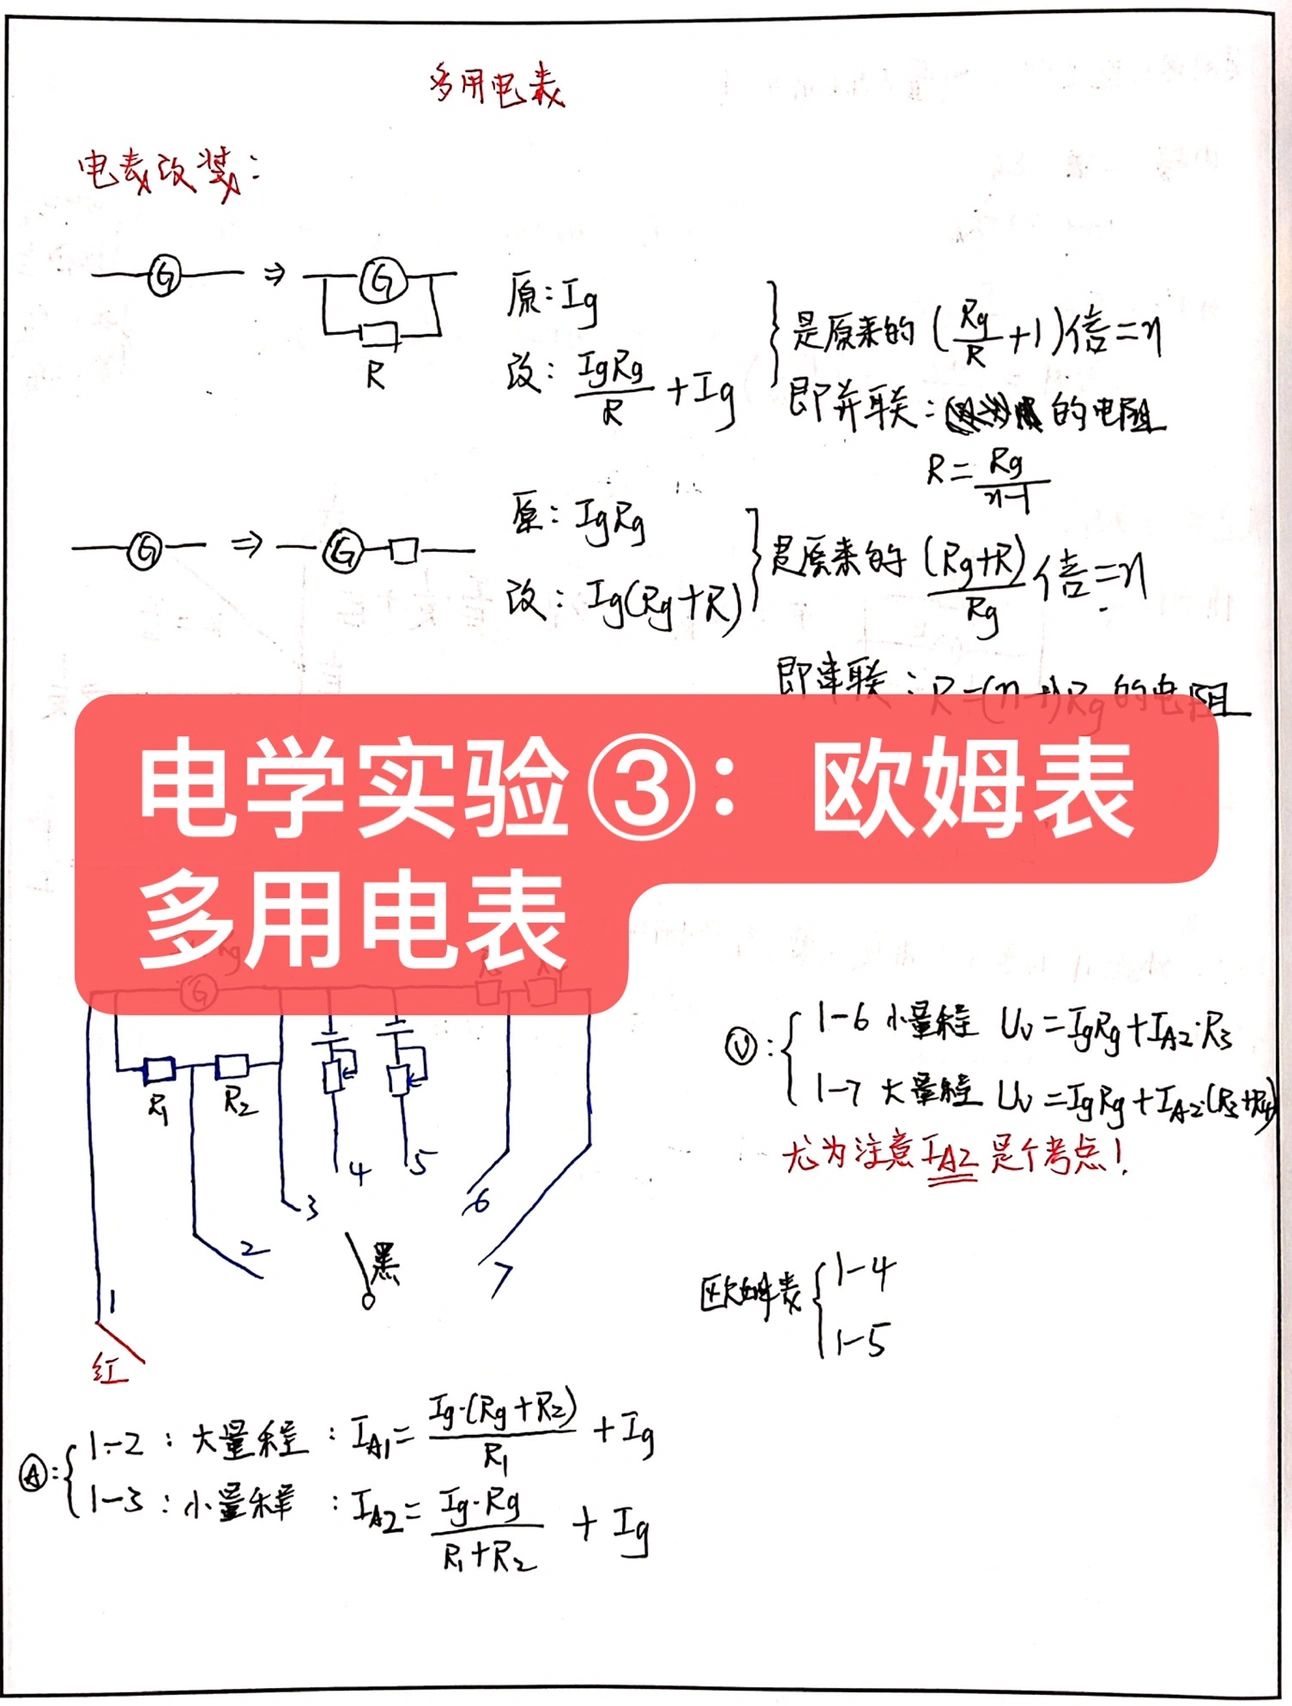 多用电表
电表改装:
G ⇒ G
R
原: Ig
改: IgRg/R + Ig
是原来的 (Rg/R + 1) 倍 = n
即并联: 的电阻
R = Rg/(n-1)
G ⇒ G
原: IgRg
改: Ig(Rg+R)
是原来的 (Rg+R)/Rg 倍 = n
即串联: R=(n-1)Rg 的电阻
电学实验③：欧姆表
多用电表
G
R1 R2
1 2 3 4 5 6 7
红
黑
V: 1-6 小量程 Uv = IgRg + IA2·R3
1-7 大量程 Uv = IgRg + IA2·(R3+R4)
尤为注意 IA2 是个考点!
欧姆表 1-4
1-5
A: 1-2: 大量程: IA1 = Ig·(Rg+R2)/R1 + Ig
1-3: 小量程: IA2 = Ig·Rg/(R1+R2) + Ig